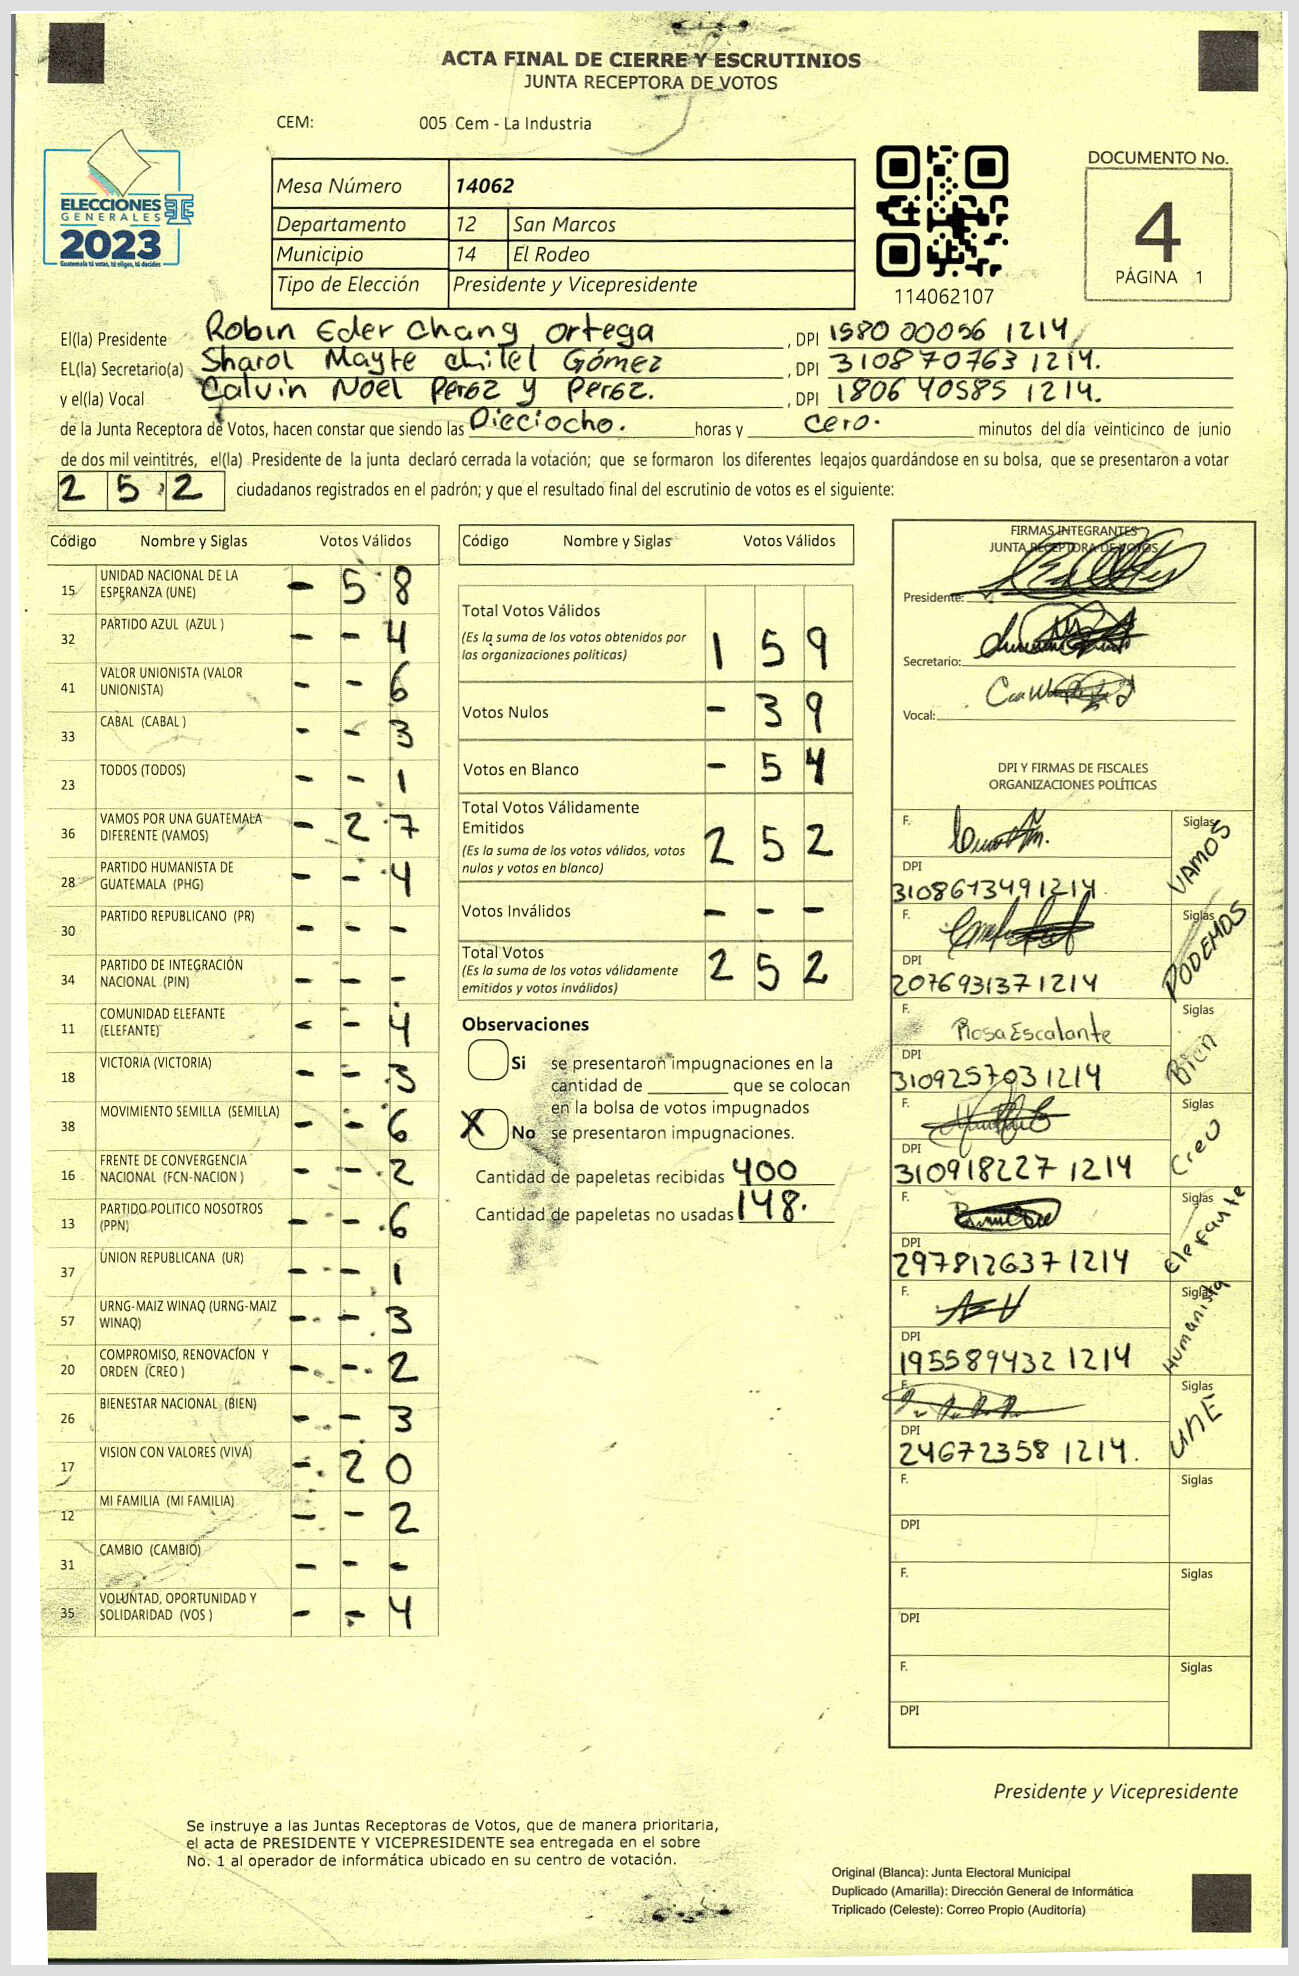 ACTA FINAL DE CIERRE Y ESCRUTINIOS
JUNTA RECEPTORA DE VOTOS
CEM: 005 Cem - La Industria
ELECCIONES
GENERALES
2023
Guatemala tú votas, tú eliges, tú decides
Mesa Número 14062
Departamento 12 San Marcos
Municipio 14 El Rodeo
Tipo de Elección Presidente y Vicepresidente
114062107
DOCUMENTO No.
4
PÁGINA 1
El(la) Presidente Robin Eder Chang Ortega, DPI 1580 00056 1214
EL(la) Secretario(a) Sharol Mayte Chitel Gómez, DPI 310870763 1214.
y el(la) Vocal Calvin Noel Perez y Perez., DPI 1806 40585 1214.
de la Junta Receptora de Votos, hacen constar que siendo las Dieciocho. horas y cero. minutos del día veinticinco de junio
de dos mil veintitrés, el(la) Presidente de la junta declaró cerrada la votación; que se formaron los diferentes legajos guardándose en su bolsa, que se presentaron a votar
2 5 2 ciudadanos registrados en el padrón; y que el resultado final del escrutinio de votos es el siguiente:
Código Nombre y Siglas Votos Válidos
15 UNIDAD NACIONAL DE LA ESPERANZA (UNE) - 5 8
32 PARTIDO AZUL (AZUL ) - - 4
41 VALOR UNIONISTA (VALOR UNIONISTA) - - 6
33 CABAL (CABAL ) - - 3
23 TODOS (TODOS) - - 1
36 VAMOS POR UNA GUATEMALA DIFERENTE (VAMOS) - 2 7
28 PARTIDO HUMANISTA DE GUATEMALA (PHG) - - 4
30 PARTIDO REPUBLICANO (PR) - - -
34 PARTIDO DE INTEGRACIÓN NACIONAL (PIN) - - -
11 COMUNIDAD ELEFANTE (ELEFANTE) - - 4
18 VICTORIA (VICTORIA) - - 3
38 MOVIMIENTO SEMILLA (SEMILLA) - - 6
16 FRENTE DE CONVERGENCIA NACIONAL (FCN-NACION ) - - 2
13 PARTIDO POLITICO NOSOTROS (PPN) - - 6
37 UNION REPUBLICANA (UR) - - 1
57 URNG-MAIZ WINAQ (URNG-MAIZ WINAQ) - - 3
20 COMPROMISO, RENOVACION Y ORDEN (CREO ) - - 2
26 BIENESTAR NACIONAL (BIEN) - - 3
17 VISION CON VALORES (VIVA) - 2 0
12 MI FAMILIA (MI FAMILIA) - - 2
31 CAMBIO (CAMBIO) - - -
35 VOLUNTAD, OPORTUNIDAD Y SOLIDARIDAD (VOS ) - - 4
Código Nombre y Siglas Votos Válidos
Total Votos Válidos
(Es la suma de los votos obtenidos por
las organizaciones políticas) 1 5 9
Votos Nulos - 3 9
Votos en Blanco - 5 4
Total Votos Válidamente
Emitidos
(Es la suma de los votos válidos, votos
nulos y votos en blanco) 2 5 2
Votos Inválidos - - -
Total Votos
(Es la suma de los votos válidamente
emitidos y votos inválidos) 2 5 2
Observaciones
Si se presentaron impugnaciones en la
cantidad de ________ que se colocan
en la bolsa de votos impugnados
X No se presentaron impugnaciones.
Cantidad de papeletas recibidas 400
Cantidad de papeletas no usadas 148.
FIRMAS INTEGRANTES
JUNTA RECEPTORA DE VOTOS
Presidente:
Secretario:
Vocal:
DPI Y FIRMAS DE FISCALES
ORGANIZACIONES POLÍTICAS
F. Siglas VAMOS
DPI
3108613491214
F. Siglas PODEMOS
DPI
2076931371214
F. Rosa Escalante Siglas Bien
DPI
310925703 1214
F. Siglas Creo
DPI
310918227 1214
F. Siglas Elefante
DPI
297812637 1214
F. Siglas Humanista
DPI
195589432 1214
F. Siglas UNE
DPI
24672358 1214.
F. Siglas
DPI
F. Siglas
DPI
F. Siglas
DPI
Presidente y Vicepresidente
Se instruye a las Juntas Receptoras de Votos, que de manera prioritaria,
el acta de PRESIDENTE Y VICEPRESIDENTE sea entregada en el sobre
No. 1 al operador de informática ubicado en su centro de votación.
Original (Blanca): Junta Electoral Municipal
Duplicado (Amarilla): Dirección General de Informática
Triplicado (Celeste): Correo Propio (Auditoría)